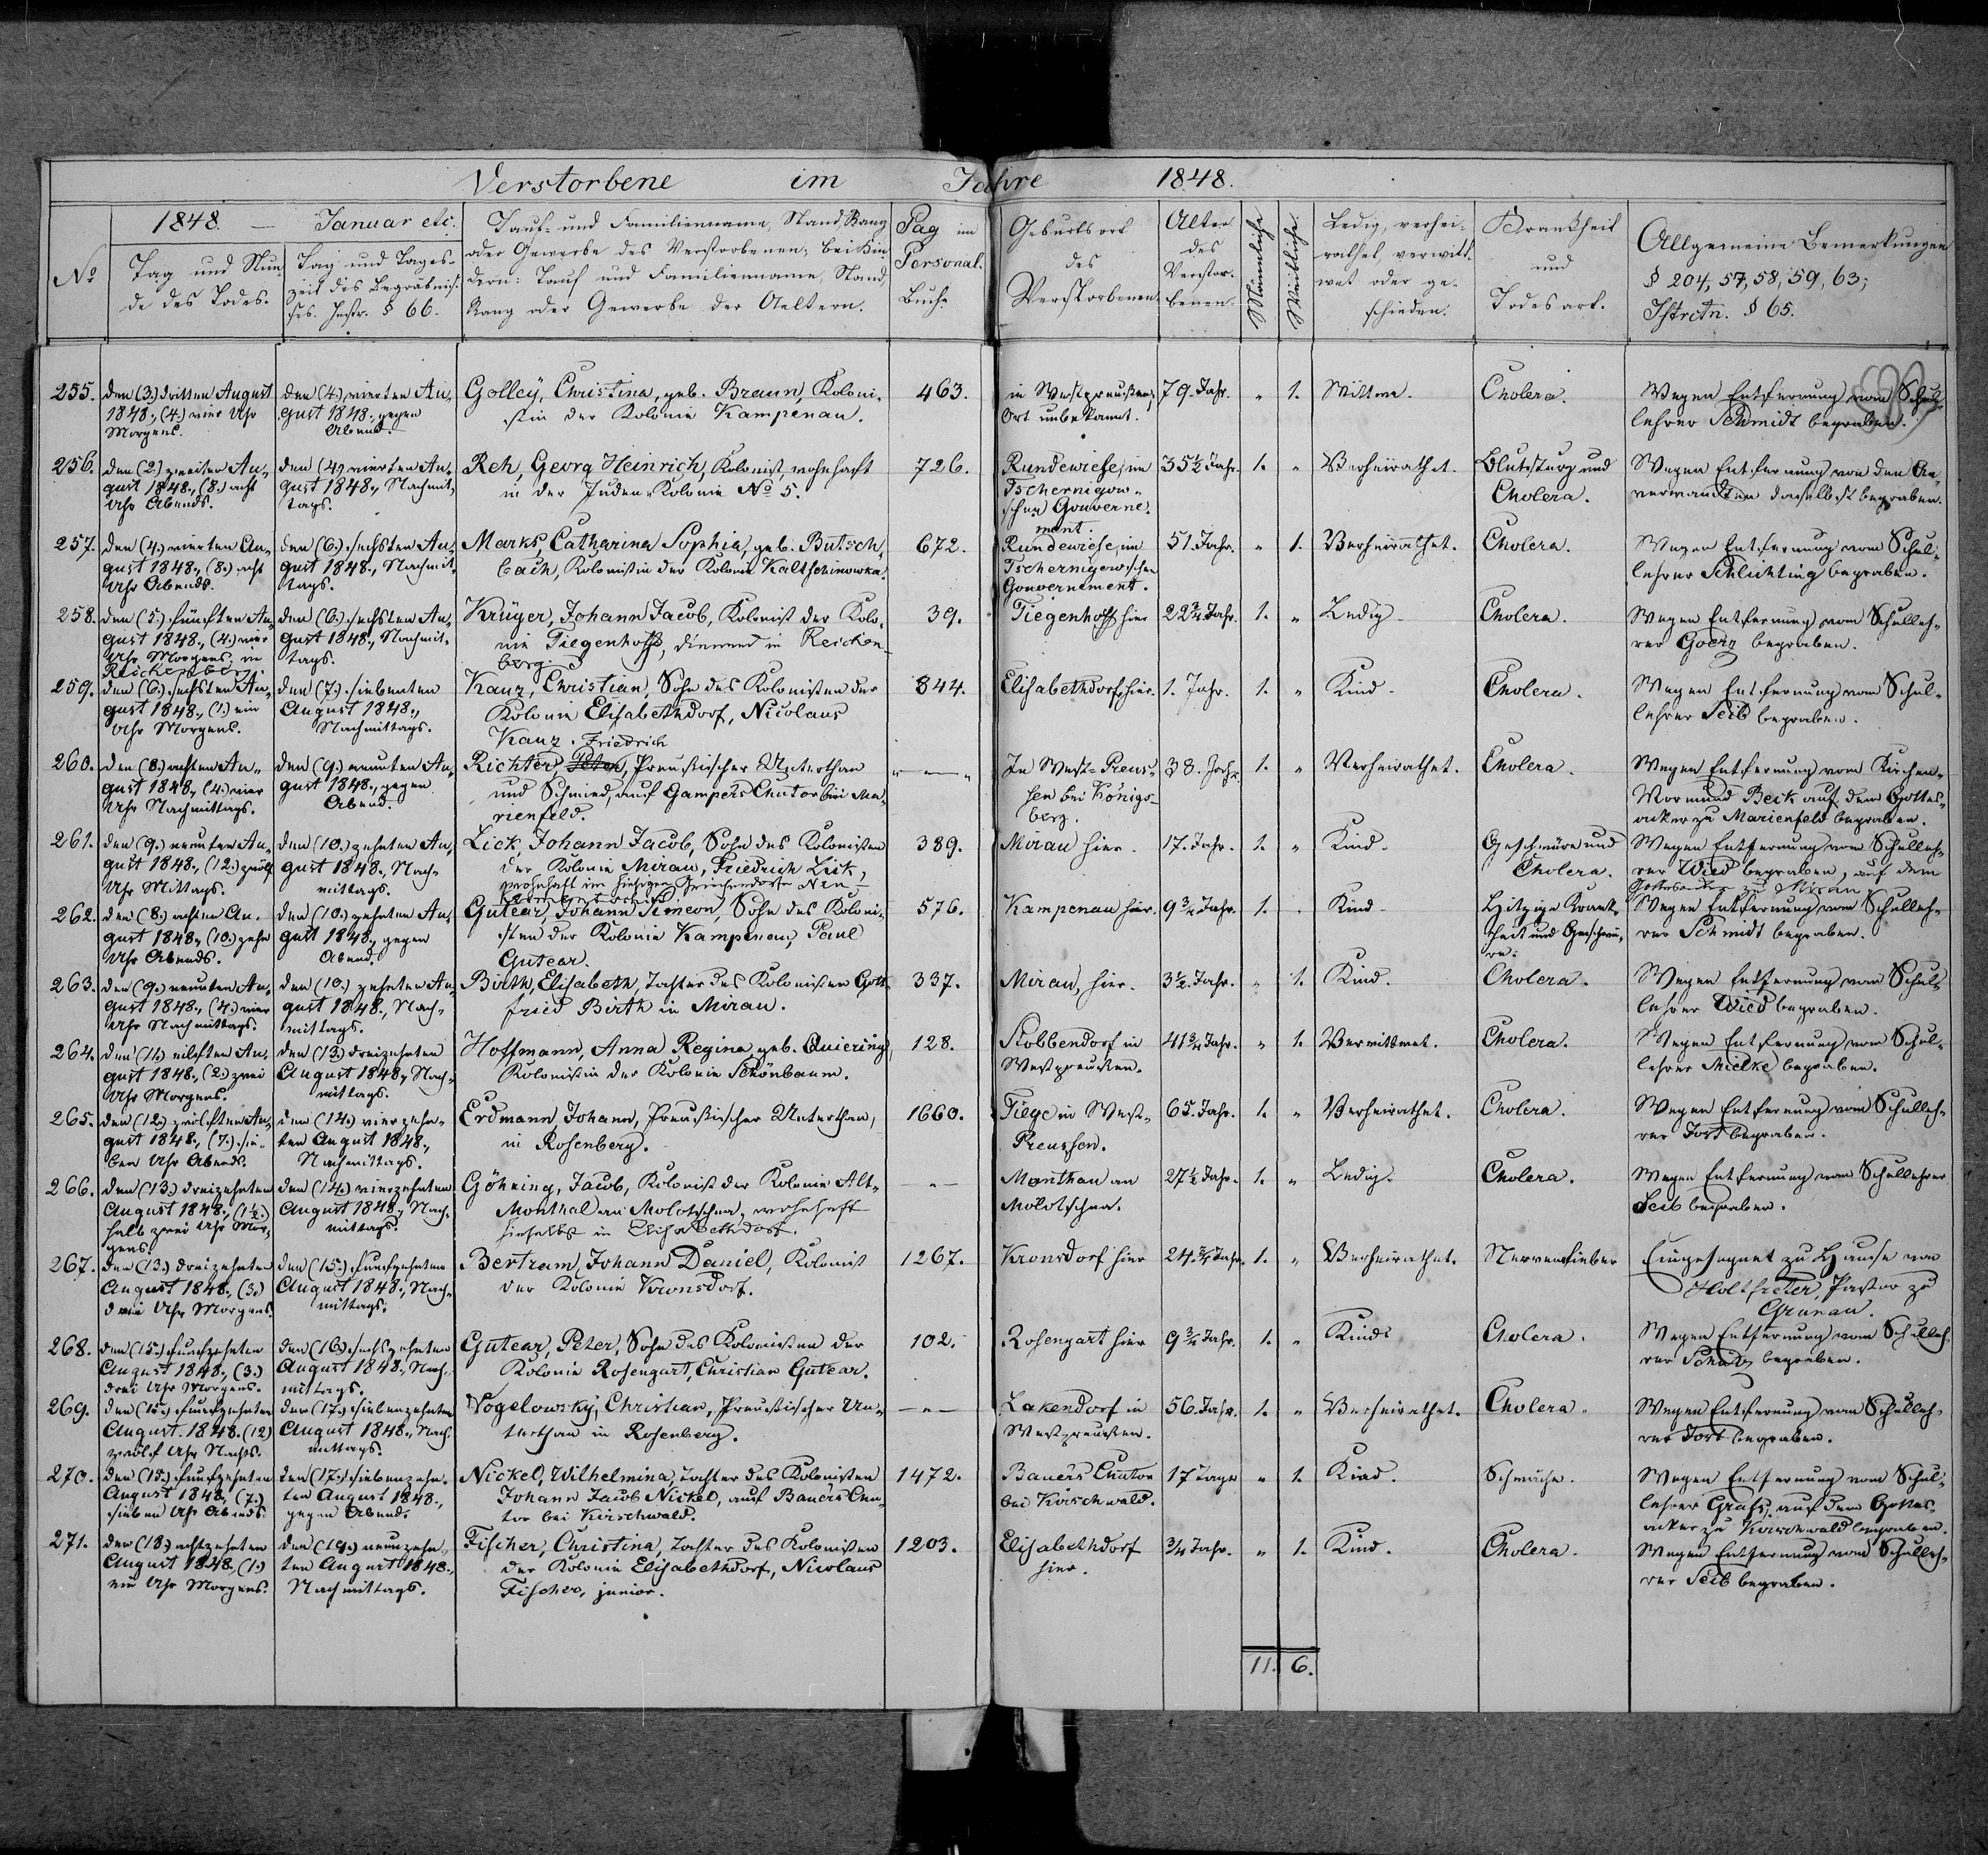 Verstorbene im Jahre 1848.
1848. — Januar etc.
No
Tag und Stun
de des Todes.
Tag und Tages-
zeit des Begräbnis-
ses. Instr. § 66.
Tauf- und Familienname, Stand, Rang
oder Gewerbe des Verstorbenen; bei Kin
dern: Tauf und Familienname, Stand,
Rang oder Gewerbe der Aeltern.
Pag im
Personal.
Buche
Geburtsort
des
Verstorbenen
Alter
des
Verstor-
benen.
Männliche
Weibliche
Ledig, verhei-
rathet, verwitt-
wet oder ge-
schieden.
Krankheit
und
Todesart.
Allgemeine Bemerkungen
§ 204, 57, 58, 59, 63;
Istrctn. § 65.
255.
den (3.) dritten August
1848., (4.) vier Uhr
Morgens.
den (4.) vierten Au-
gust 1848., gegen
Abend.
Golley, Christina, geb. Braun, Koloni-
stin der Kolonie Kampenau.
463.
in Westpreußen,
Ort unbekannt.
79. Jahr.
"
1.
Wittwe.
Cholera.
Wegen Entfernung vom Schul-
lehrer Schmidt begraben.
256.
den (2.) zweiten Au-
gust 1848., (8.) acht
Uhr Abends.
den (4.) vierten Au-
gust 1848., Nachmit-
tags.
Reh, Georg Heinrich, Kolonist, wohnhaft
in der Juden-Kolonie No 5.
726.
Rundewiese, im
Tschernigow-
schen Gouverne-
ment.
35½ Jahr.
1.
"
Verheirathet.
Blutsturz und
Cholera.
Wegen Entfernung von den An-
verwandten daselbst begraben.
257.
den (4.) vierten Au-
gust 1848., (8.) acht
Uhr Abends.
den (6.) sechsten Au-
gust 1848., Nachmit-
tags.
Marks, Catharina Sophia, geb. Butsch-
bach, Kolonistin der Kolonie Kaltschinowka.
672.
Rundewiese, im
Tschernigowschen
Gouvernement.
51. Jahr.
"
1.
Verheirathet.
Cholera.
Wegen Entfernung vom Schul-
lehrer Schlichting begraben.
258.
den (5.) fünften Au-
gust 1848., (4.) vier
Uhr Morgens; in
Reichenberg
den (6.) sechsten Au-
gust 1848., Nachmit-
tags.
Krüger, Johann Jacob, Kolonist der Kolo-
nie Tiegenhoff, dienend in Reichen-
berg.
39.
Tiegenhoff hier
22¾ Jahr.
1.
"
Ledig.
Cholera.
Wegen Entfernung vom Schulleh-
rer Goerz begraben.
259.
den (6.) sechsten Au-
gust 1848., (1.) ein
Uhr Morgens.
den (7.) siebenten
August 1848.,
Nachmittags.
Kanz, Christian, Sohn des Kolonisten der
Kolonie Elisabethdorf, Nicolaus
Kanz.
844.
Elisabethdorf, hier.
1. Jahr.
1.
"
Kind.
Cholera.
Wegen Entfernung vom Schul-
lehrer Seib begraben.
260.
den (8.) achten Au-
gust 1848., (4.) vier
Uhr Nachmittags.
den (9.) neunten Au-
gust 1848., gegen
Abend.
Friedrich
Richter, Peter, Preussischer Unterthan
und Schmied, auf Gampers Chutor bei Ma-
rienfeld.
" — "
In West-Preus-
sen bei Königs-
berg.
38. Jahr.
1.
"
Verheirathet.
Cholera.
Wegen Entfernung vom Kirchen-
Vormund Beck auf dem Gottes-
acker zu Marienfeld begraben.
261.
den (9.) neunten Au-
gust 1848., (12.) zwölf
Uhr Mittags.
den (10.) zehnten Au-
gust 1848., Nach-
mittags.
Lick, Johann Jacob, Sohn des Kolonisten
der Kolonie Mirau, Friedrich Lick,
wohnhaft im hiesigen Griechendorfe Neu-
389.
Mirau hier.
17. Jahr.
1.
"
Kind.
Geschwüre und
Cholera.
Wegen Entfernung vom Schulleh-
rer Wied begraben, auf dem
Gottesacker zu Mirau.
262.
den (8.) achten Au-
gust 1848., (10.) zehn
Uhr Abends.
den (10.) zehnten Au-
gust 1848., gegen
Abend.
Gutear, Johann Simeon, Sohn des Koloni-
sten der Kolonie Kampenau, Paul
Gutear.
576.
Kampenau hier.
9¾ Jahr.
1.
"
Kind.
Hitzige Krank-
heit und Geschwü-
re.
Wegen Entfernung vom Schulleh-
rer Schmidt begraben.
263.
den (9.) neunten Au-
gust 1848., (4.) vier
Uhr Nachmittags.
den (10.) zehnten Au-
gust 1848., Nach-
mittags.
Birth, Elisabeth, Tochter des Kolonisten Gott-
fried Birth in Mirau.
337.
Mirau, hier.
3½ Jahr.
"
1.
Kind.
Cholera.
Wegen Entfernung vom Schul-
lehrer Wied begraben.
264.
den (11.) eilften Au-
gust 1848., (2.) zwei
Uhr Morgens.
den (13.) dreizehnten
August 1848., Nach-
mittags.
Hoffmann, Anna Regina, geb. Quiering,
Kolonistin der Kolonie Schönbaum.
128.
Stobbendorf in
Westpreussen.
41¾ Jahr.
"
1.
Verwittwet.
Cholera.
Wegen Entfernung vom Schul-
lehrer Mielke begraben.
265.
den (12.) zwölften Au-
gust 1848., (7.) sie-
ben Uhr Abends.
den (14.) vierzehn-
ten August 1848.,
Nachmittags.
Erdmann, Johann, Preussischer Unterthan,
in Rosenberg.
1660.
Tiege in West-
Preussen.
65. Jahr.
1.
"
Verheirathet.
Cholera.
Wegen Entfernung vom Schulleh-
rer Jost begraben.
266.
den (13.) dreizehnten
August 1848., (1½.)
halb zwei Uhr Mor-
gens.
den (14.) vierzehnten
August 1848., Nach-
mittags.
Göhring, Jacob, Kolonist der Kolonie Alt-
Monthal an Molotschna, wohnhaft
hieselbst in Elisabethdorf.
— " —
Monthau an
Molotschna.
27½ Jahr.
1.
"
Ledig.
Cholera.
Wegen Entfernung vom Schullehrer
Seib begraben.
267.
den (13.) dreizehnten
August 1848., (3.)
drei Uhr Morgens.
den (15.) fünfzehnten
August 1848., Nach-
mittags.
Bertram, Johann Daniel, Kolonist
der Kolonie Kronsdorf.
1267.
Kronsdorf hier
24¾ Jahr.
1.
"
Verheirathet.
Nervenfieber
Eingesegnet zu Hause von
Holtfreter, Pastor zu
Grunau.
268.
den (15.) fünfzehnten
August 1848., (3.)
drei Uhr Morgens.
den (16.) sechszehnten
August 1848., Nach-
mittags.
Gutear, Peter, Sohn des Kolonisten der
Kolonie Rosengart, Christian Gutear.
102.
Rosengart hier
9¾ Jahr.
1.
"
Kind.
Cholera.
Wegen Entfernung vom Schulleh-
rer Schatz begraben.
269.
den (15.) fünfzehnten
August 1848. (12)
zwölf Uhr Nachts.
den (17.) siebenzehnten
August 1848., Nach-
mittags.
Vogelowsky, Christian, Preussischer Un-
terthan in Rosenberg.
— " —
Lakendorf in
Westpreussen.
56. Jahr.
1.
"
Verheirathet.
Cholera.
Wegen Entfernung vom Schulleh-
rer Jost begraben.
270.
den (15.) fünfzehnten
August 1848., (7.)
sieben Uhr Abends.
den (17.) siebenzehn-
ten August 1848.,
gegen Abend.
Nickel, Wilhelmina, Tochter des Kolonisten
Johann Jacob Nickel, auf Bauers Chu-
tor bei Kirschwald.
1472.
Bauers Chutor
bei Kirschwald.
17 Tage
"
1.
Kind.
Schwäche.
Wegen Entfernung vom Schul-
lehrer Grafs, auf dem Gottes-
acker zu Kirschwald begraben.
271.
den (18.) achtzehnten
August 1848., (1.)
ein Uhr Morgens.
den (19.) neunzehn-
ten August 1848.,
Nachmittags.
Fischer, Christina, Tochter des Kolonisten
der Kolonie Elisabethdorf, Nicolaus
Fischer, junior.
1203.
Elisabethdorf
hier.
¾ Jahr.
"
1.
Kind.
Cholera.
Wegen Entfernung vom Schulleh-
rer Seib begraben.
11. 6.